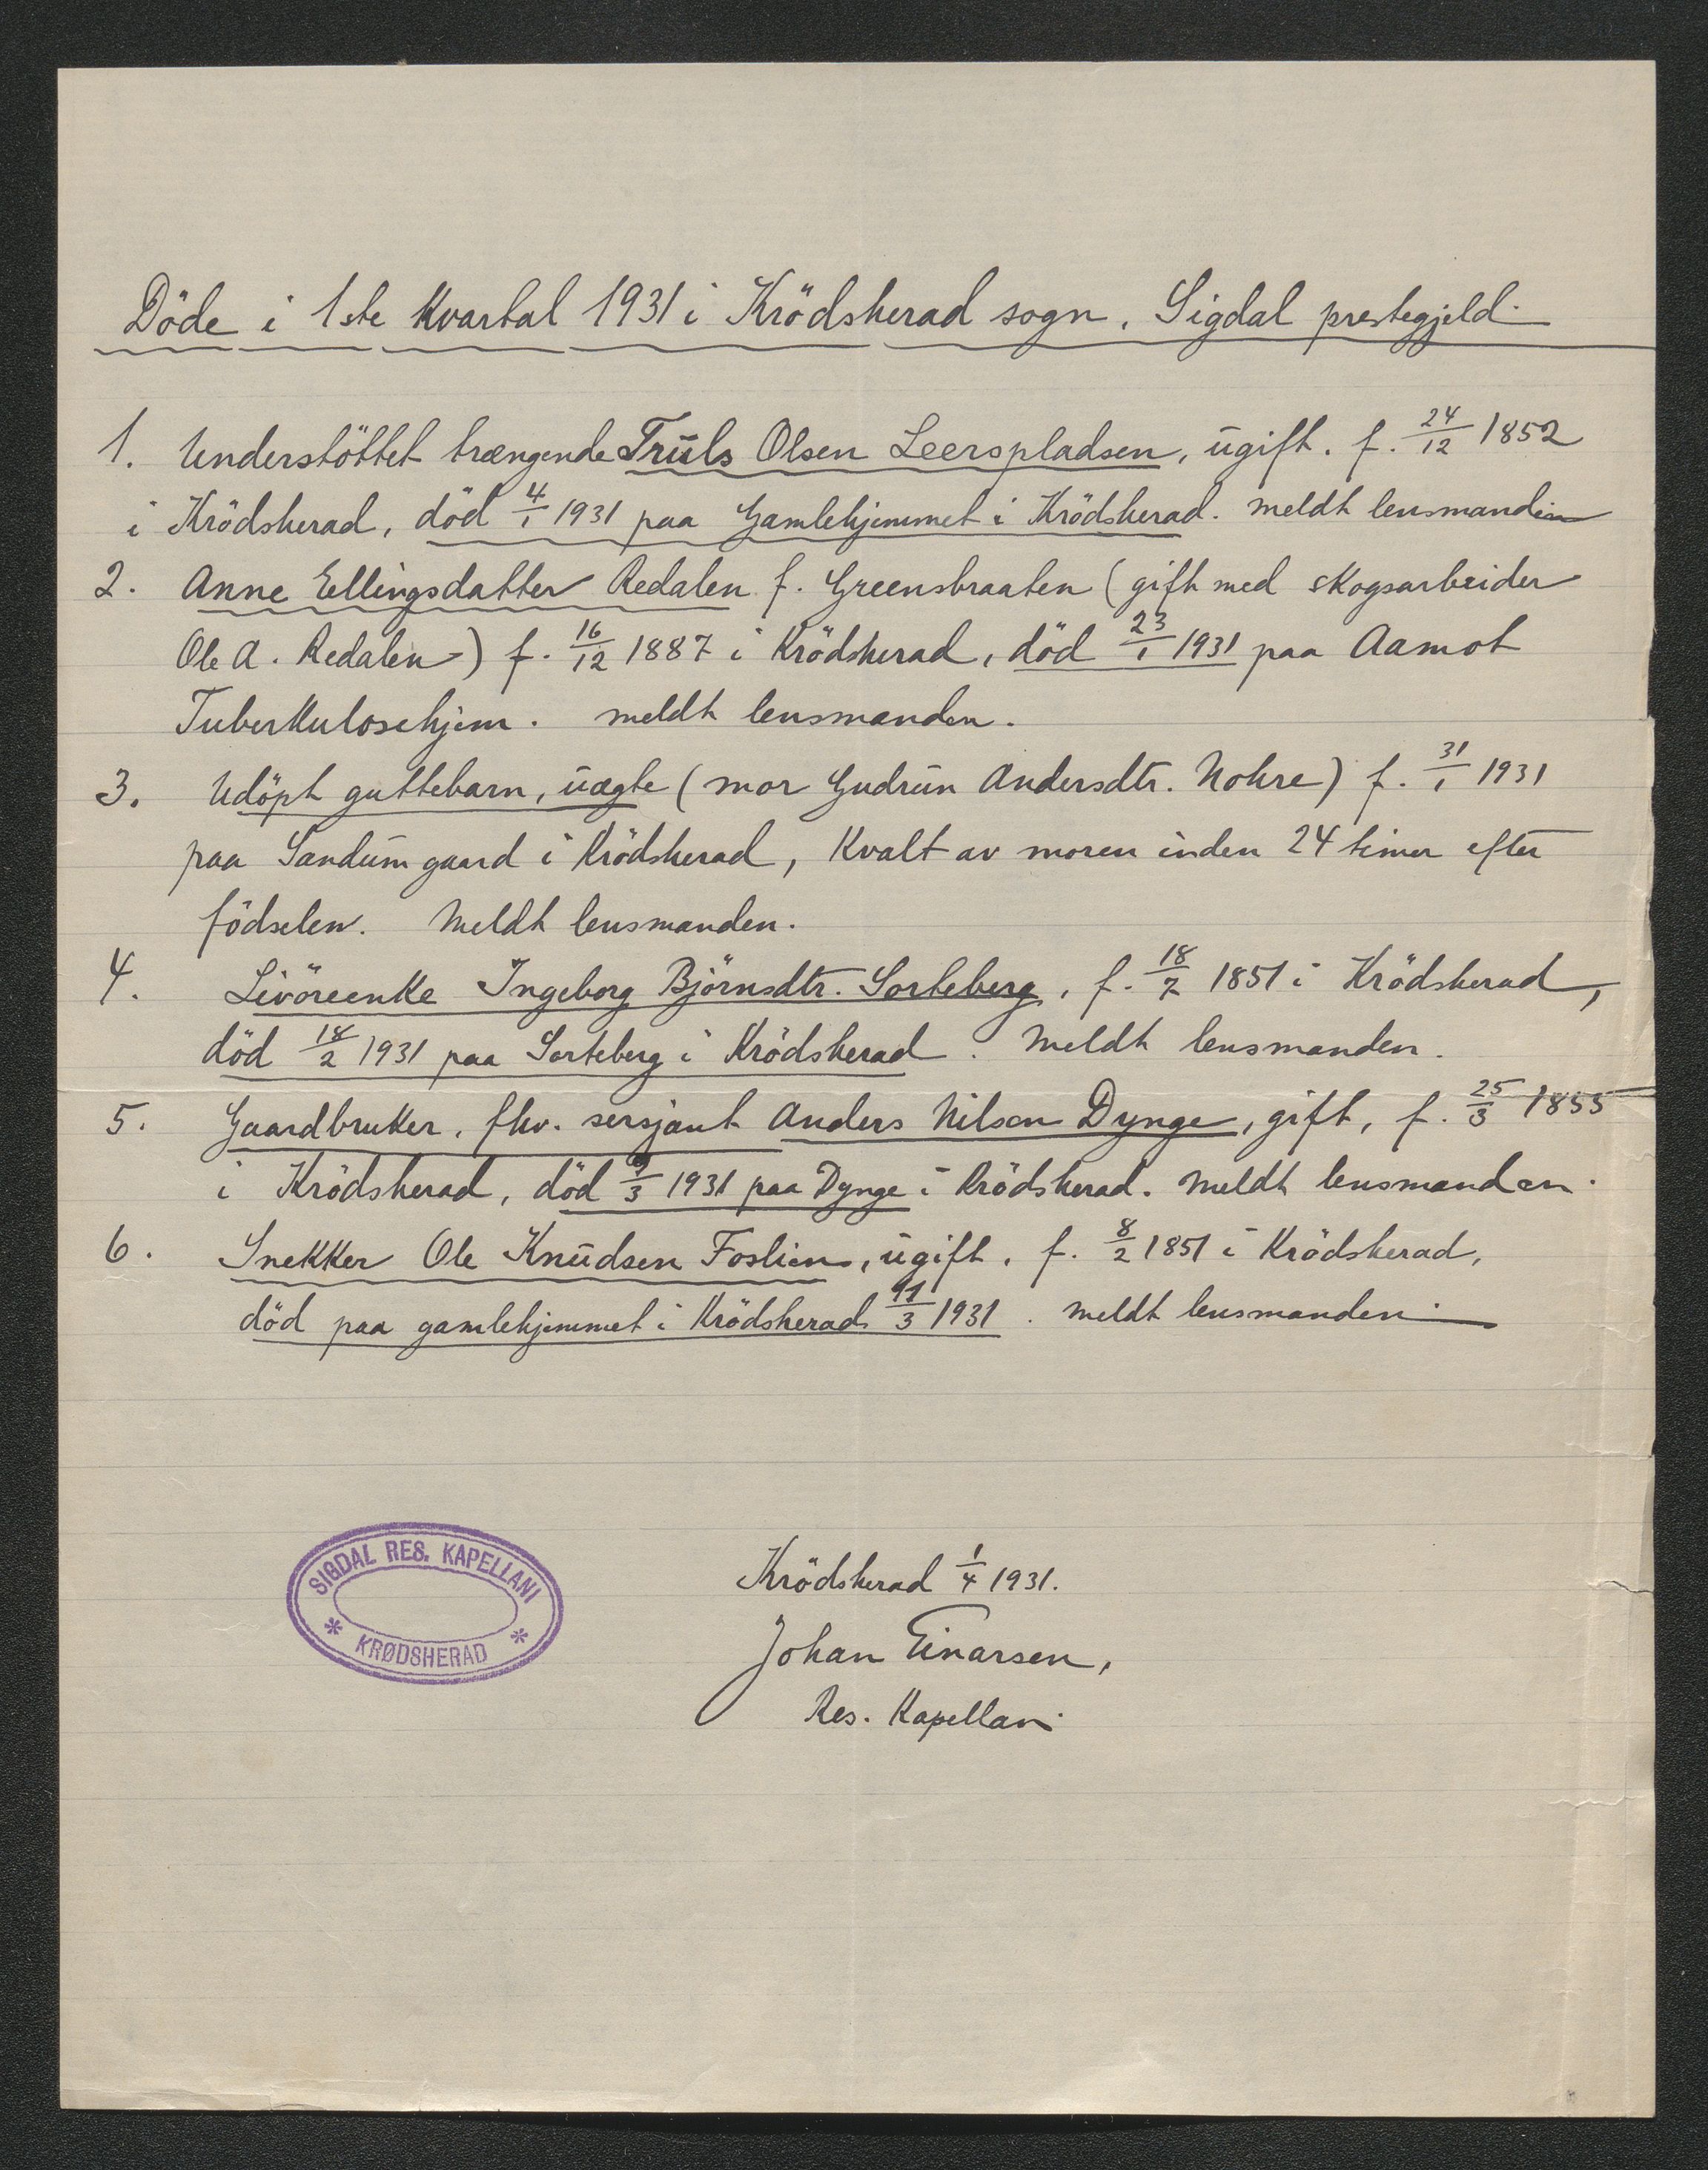 Döde i 1ste Kvartal 1931 i Krödsherad sogn, Sigdal prestegjeld.
1. Understöttet trængende Truls Olsen Leerspladsen, ugift. f. 24/12 1852
i Krödsherad, död 4/1 1931 paa Gamlehjemmet i Krödsherad. meldt lensmanden
2. Anne Ellingsdatter Redalen f. Greensbraaten (gift med skogsarbeider
Ole A. Redalen) f. 16/12 1887 i Krödsherad, död 23/1 1931 paa Aamot
Tuberkulosehjem. meldt lensmanden.
3. Udöpt guttebarn, uægte (mor Gudrun Andersdtr. Nohre) f. 31/1 1931
paa Sandum gaard i Krödsherad, Kvalt av moren inden 24 timer efter
födselen. Meldt lensmanden.
4. Livöreenke Ingeborg Björnsdtr. Sorteberg, f. 18/7 1851 i Krödsherad,
död 18/2 1931 paa Sorteberg i Krödsherad. Meldt lensmanden.
5. Gaardbruker, fhv. sersjant Anders Nilsen Dynge, gift, f. 25/3 1855
i Krödsherad, död 9/3 1931 paa Dynge i Krödsherad. Meldt lensmanden.
6. Snekker Ole Knudsen Foslien, ugift, f. 8/2 1851 i Krödsherad,
död paa gamlehjemmet i Krödsherad 11/3 1931. meldt lensmanden.
SIGDAL RES. KAPELLANI
* KRØDSHERAD *
Krödsherad 1/4 1931.
Johan Einarsen,
Res. Kapellan.